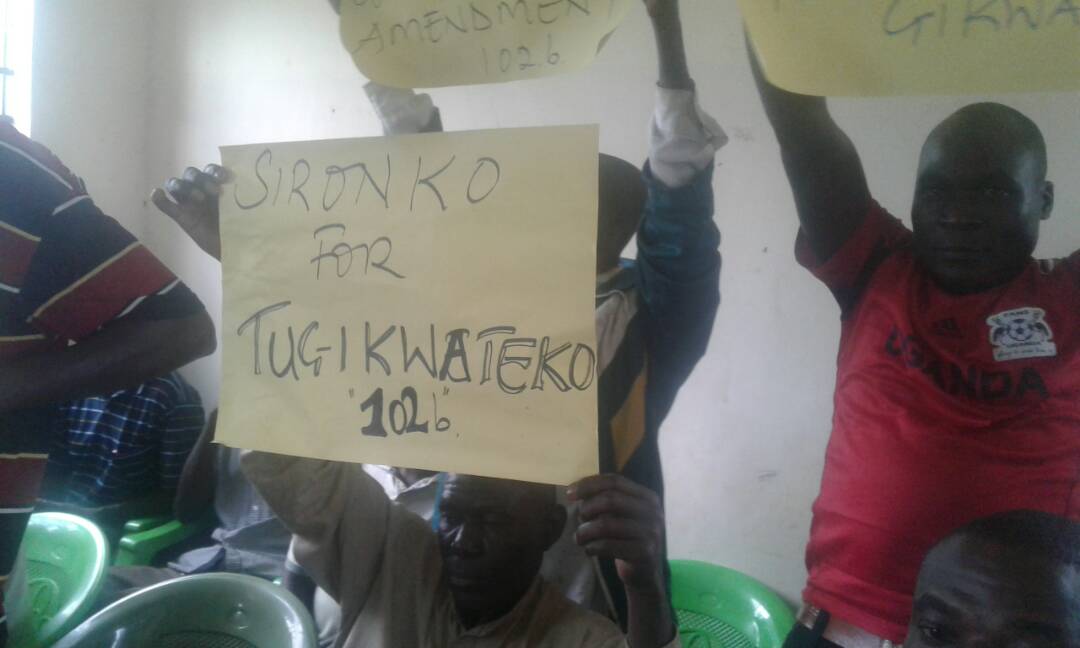 AMENDMENT
102 b
GIKWA
SIRONKO
FOR
TUGIKWATEKO
"102b".
UGANDA